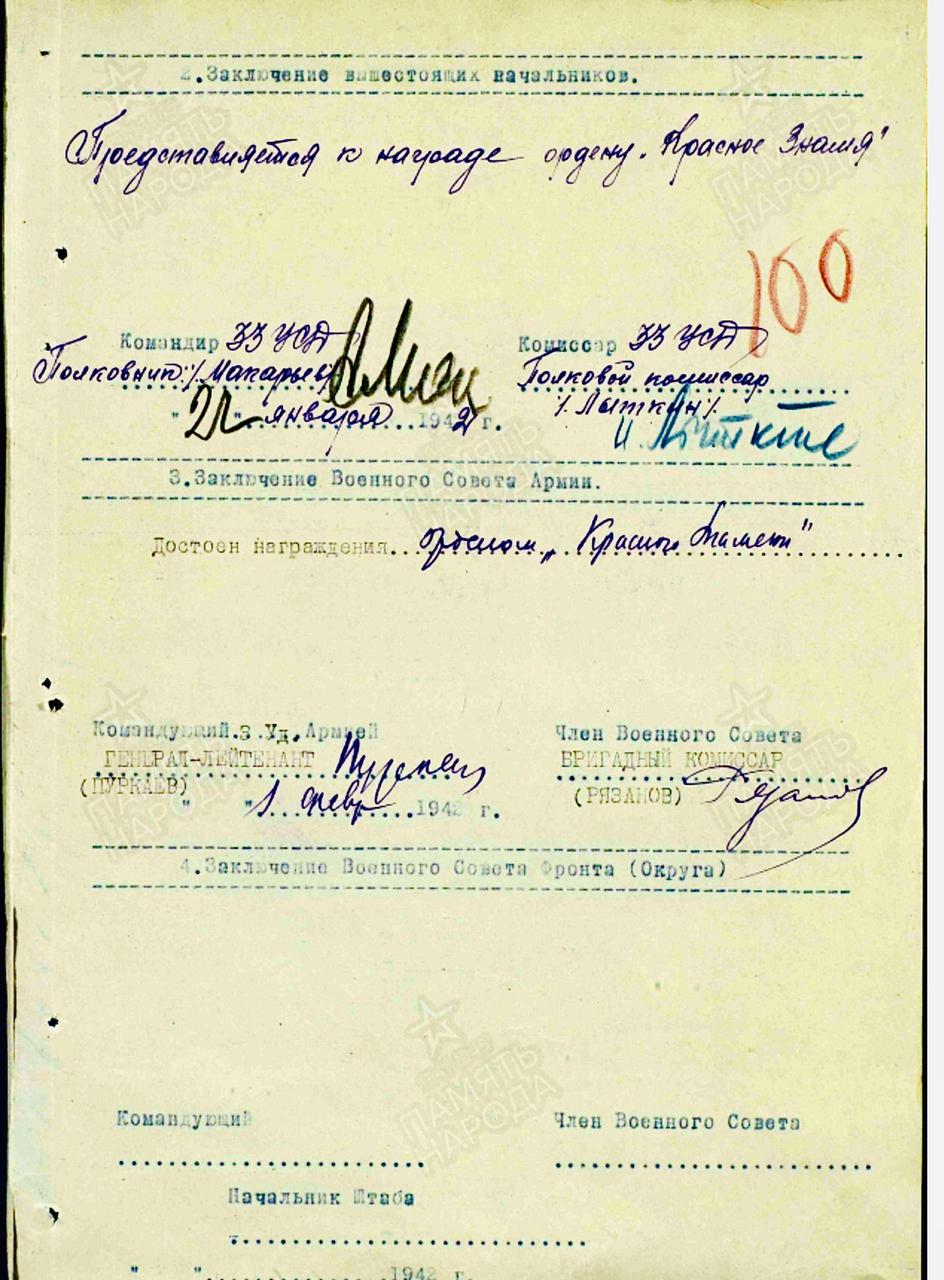 2.Заключение вышестоящих начальников.
Представляется к награде ордену „Красное Знамя"
100
Командир 33 УСД
Полковник /Макарьев/
"22" января 1942 г.
Комиссар 33 УСД
Полковой комиссар
/Лыткин/
И. Лыткин
3.Заключение Военного Совета Армии.
Достоен награждения...орденом „Красного Знамени"
Командующий 3 Уд. Армией
ГЕНЕРАЛ-ЛЕЙТЕНАНТ
(ПУРКАЕВ)
"1" февр 1942 г.
Член Военного Совета
БРИГАДНЫЙ КОМИССАР
(РЯЗАНОВ) Рязанов
4.Заключение Военного Совета Фронта (Округа)
Командующий
Член Военного Совета
Начальник Штаба
" "...............1942 г.
ПАМЯТЬ
НАРОДА